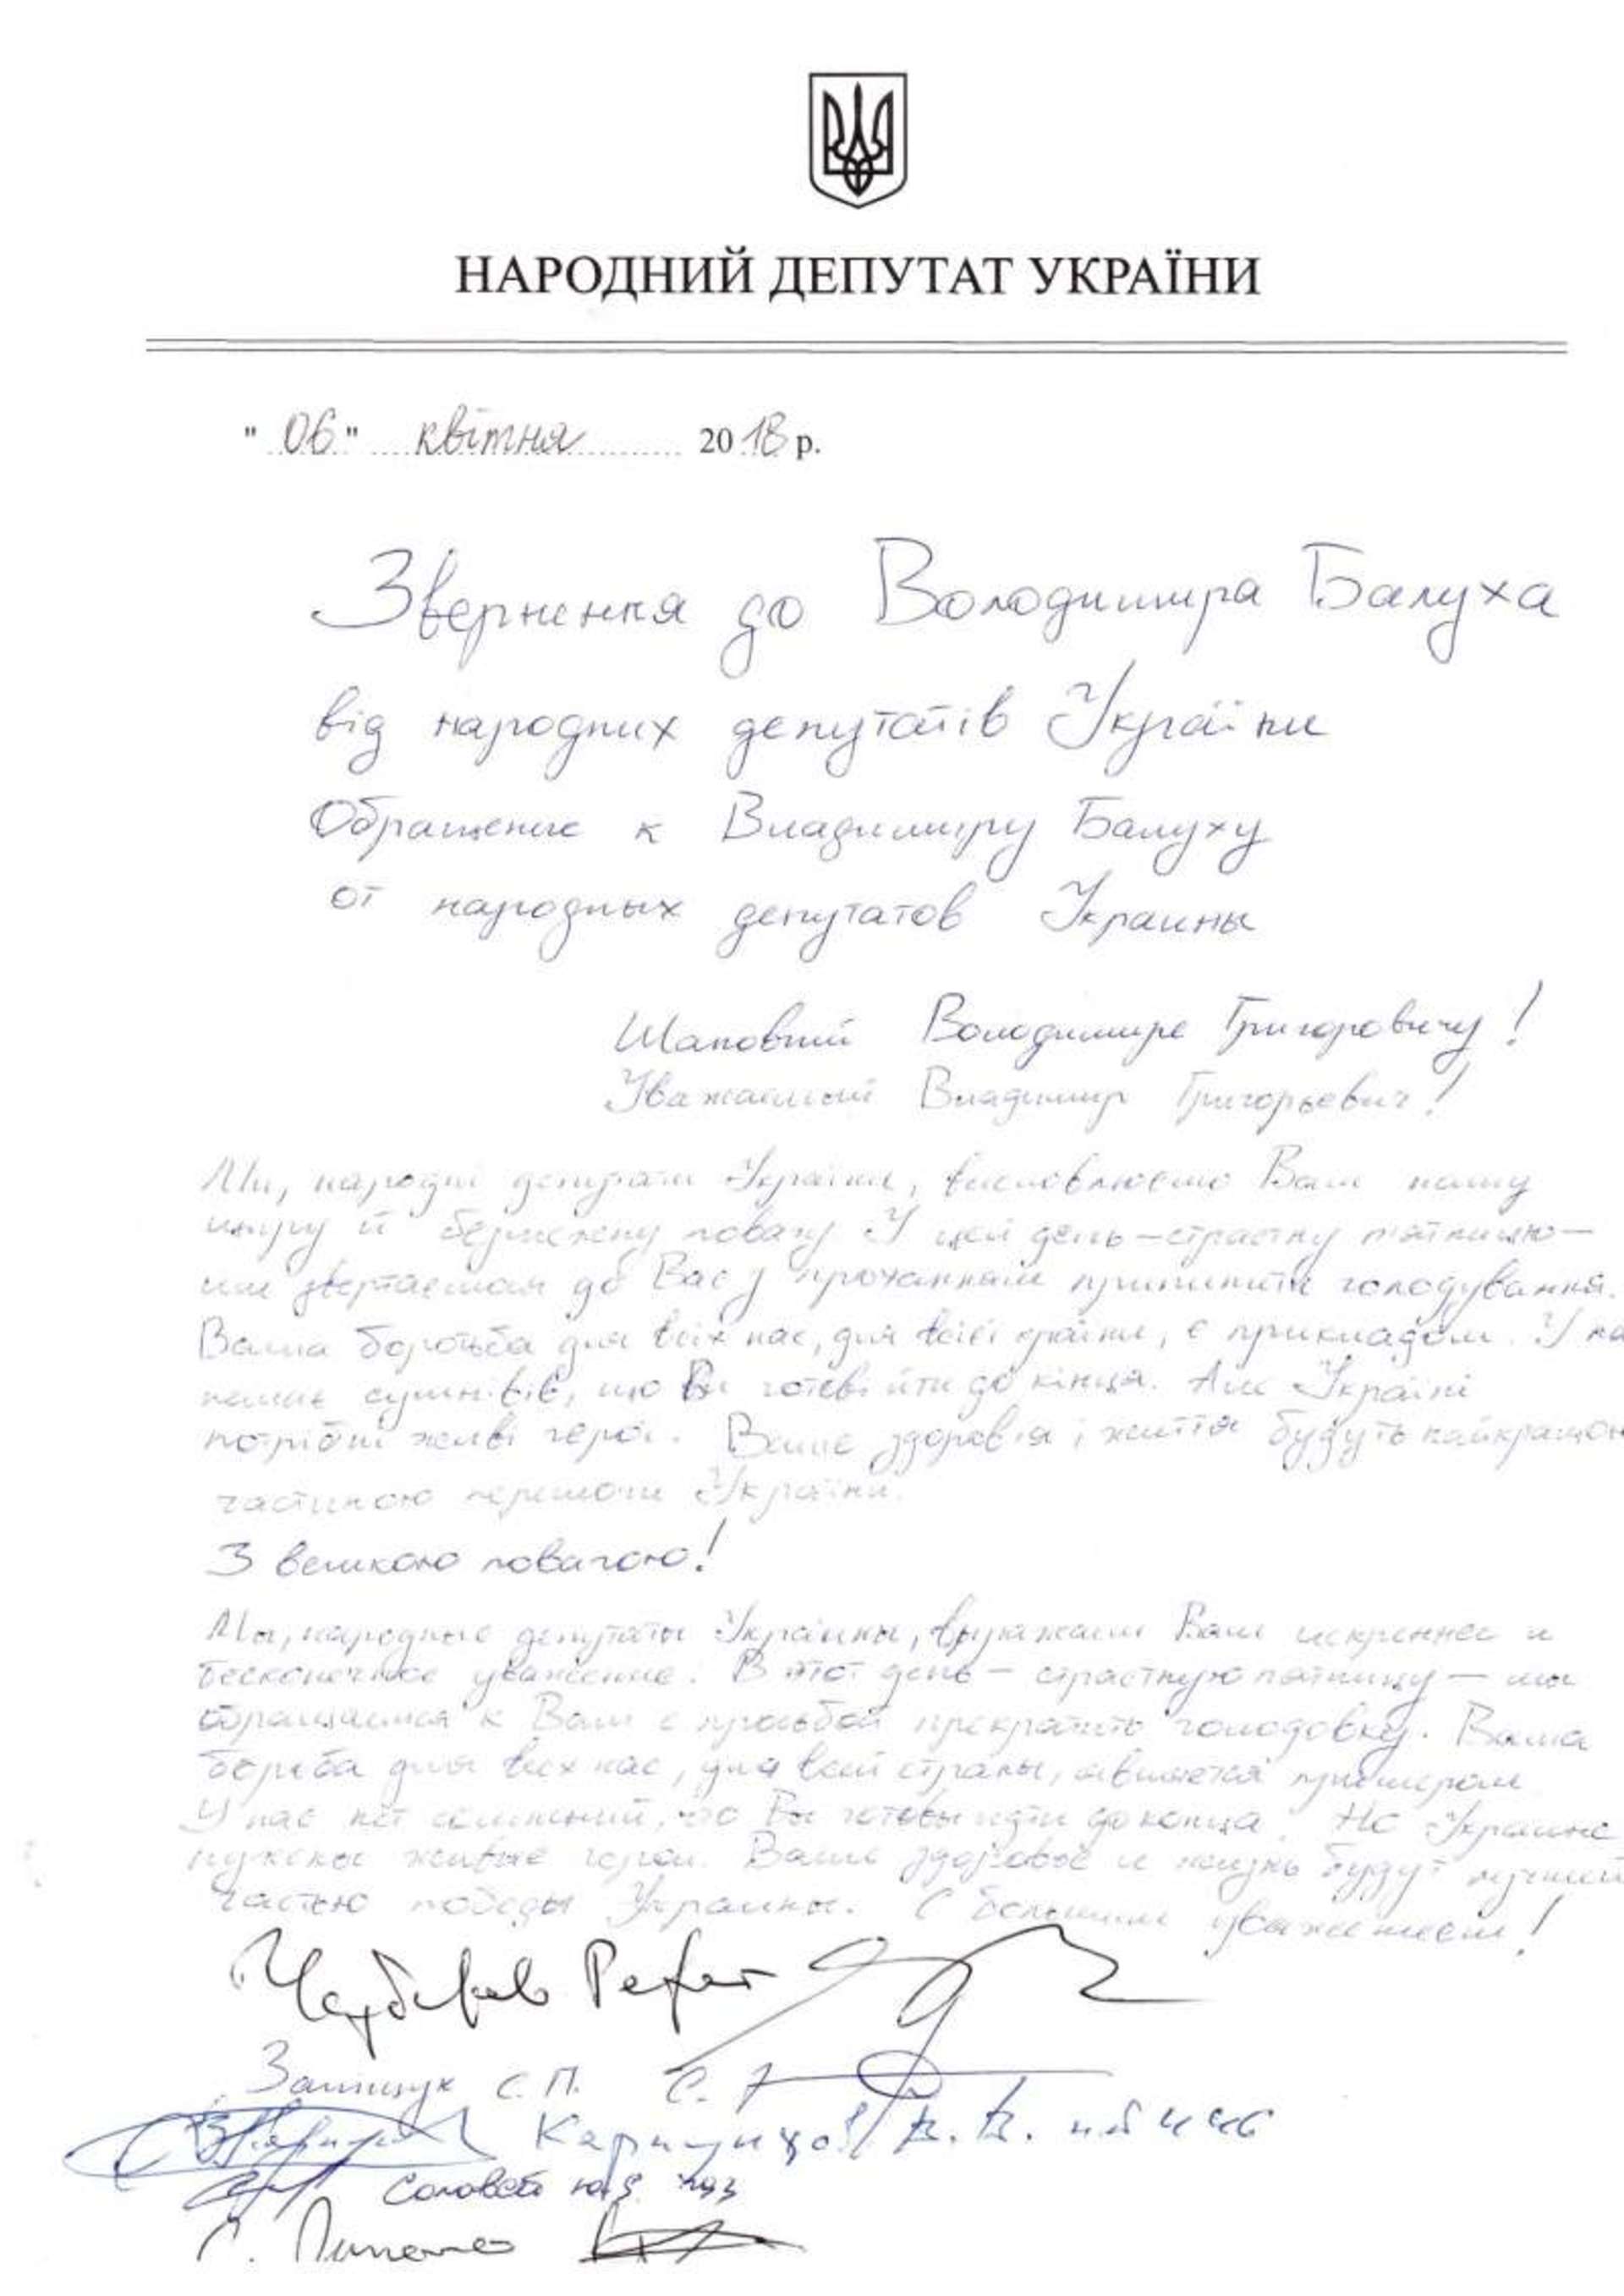 НАРОДНИЙ ДЕПУТАТ УКРАЇНИ
"06" квітня 2018 р.
Звернення до Володимира Балуха
від народних депутатів України
Обращение к Владимиру Балуху
от народных депутатов Украины
Шановний Володимире Григоровичу!
Уважаемый Владимир Григорьевич!
Ми, народні депутати України, висловлюємо Вам нашу
щиру й безмежну повагу У цей день – страсну п'ятницю –
ми звертаємося до Вас з проханням припинити голодування.
Ваша боротьба для всіх нас, для всієї країни, є прикладом. У на
немає сумнівів, що Ви готові йти до кінця. Але Україні
потрібні живі герої. Ваше здоров'я і життя будуть найкращою
частиною перемоги України.
З великою повагою!
Мы, народные депутаты Украины, выражаем Вам искреннее и
бесконечное уважение. В этот день – страстную пятницу – мы
обращаемся к Вам с просьбой прекратить голодовку. Ваша
борьба для всех нас, для всей страны, является примером
У нас нет сомнений, что Вы готовы идти до конца. Но Украине
нужны живые герои. Ваше здоровье и жизнь будут лучшей
частью победы Украины. С большим уважением!
Чубаров Рефат
Заліщук С.П.
Карпунцов В.В.
Соловей Ю.І.